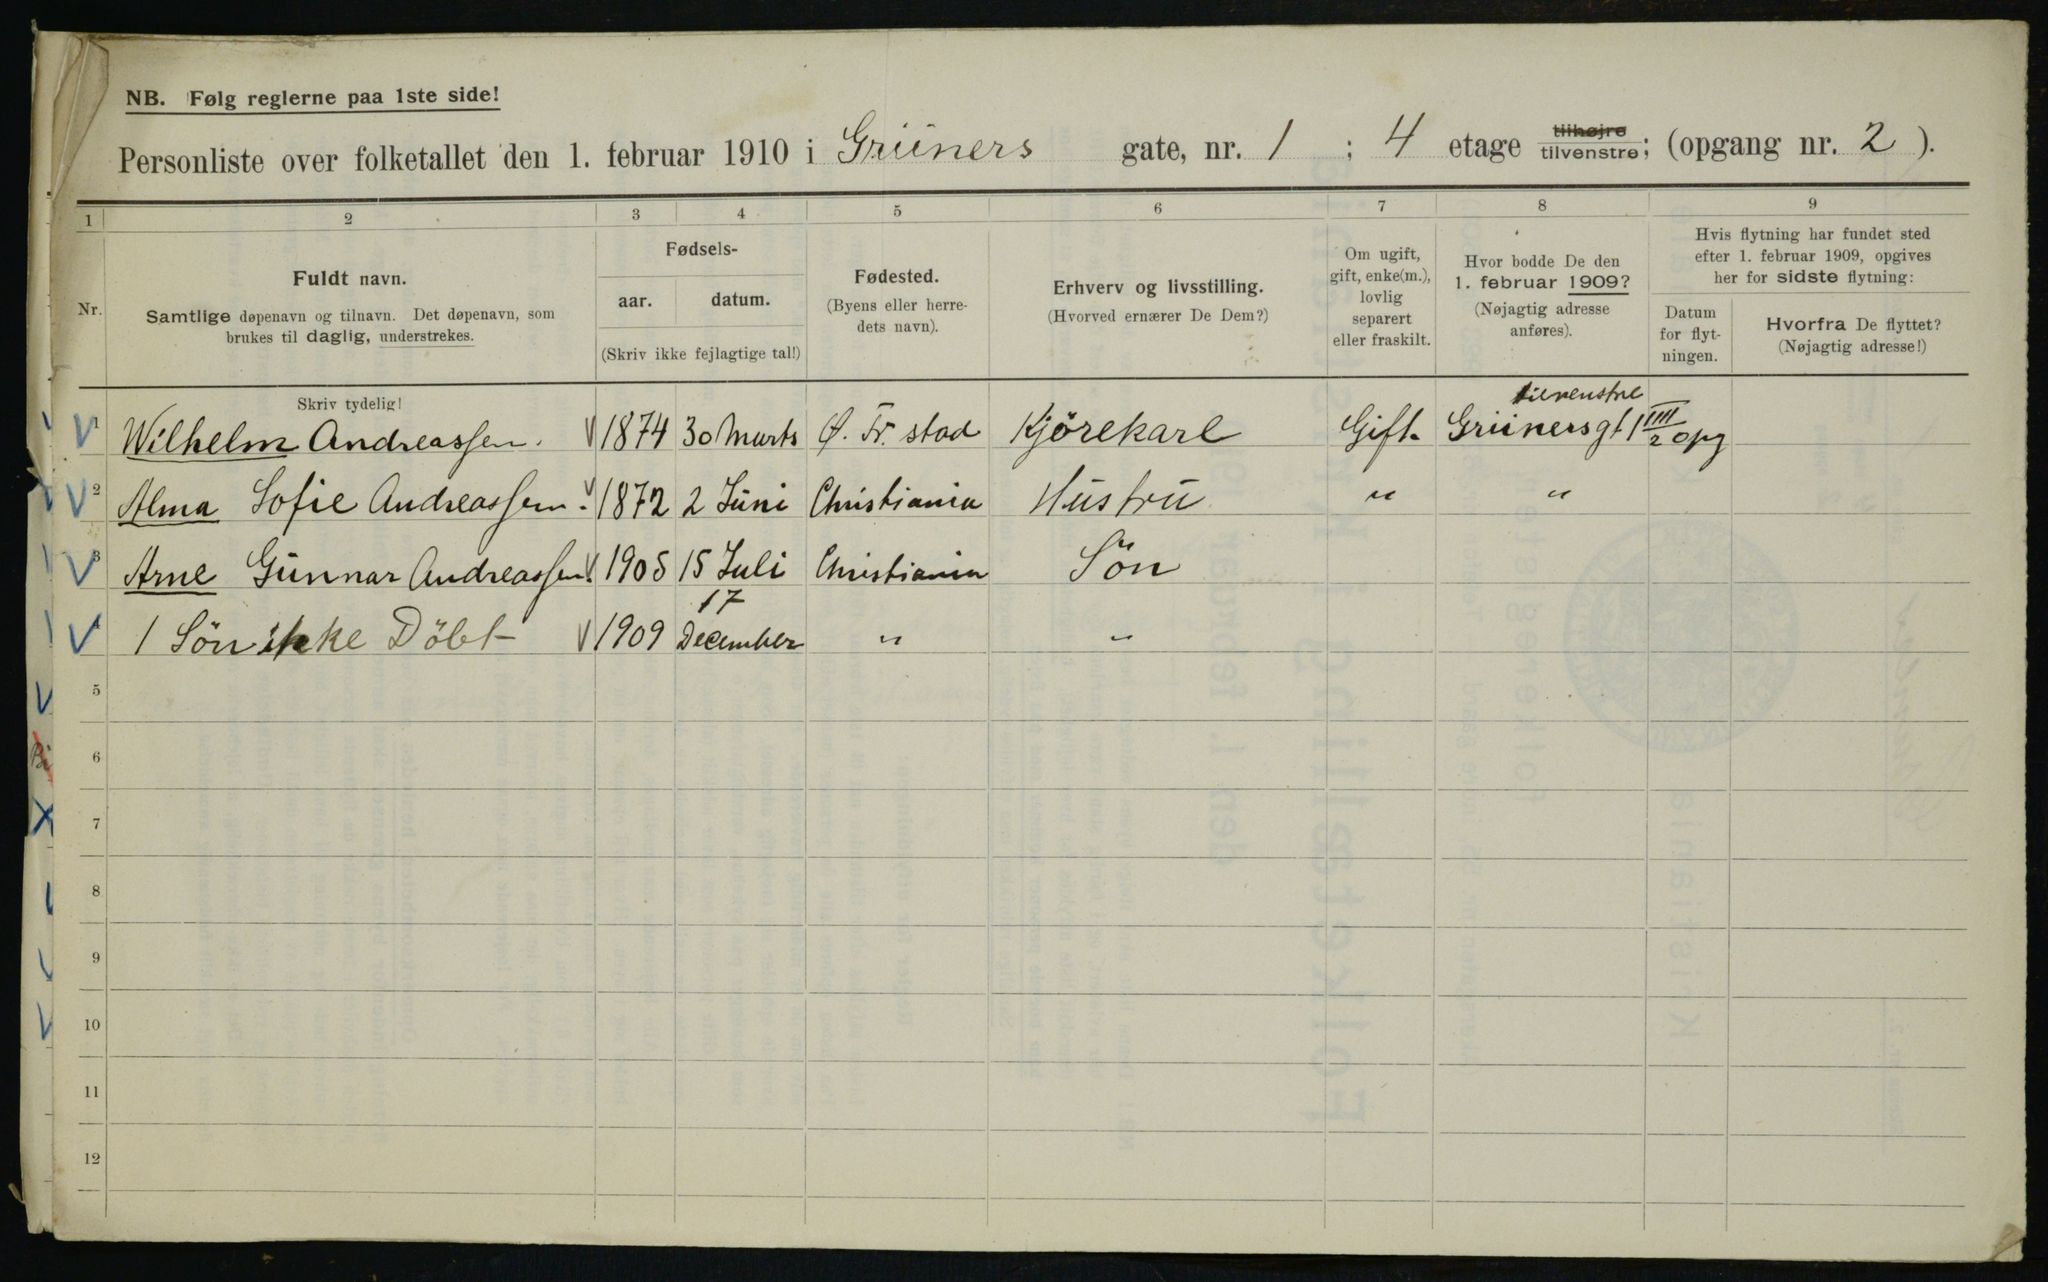 NB. Følg reglerne paa 1ste side!
Personliste over folketallet den 1. februar 1910 i Grüners gate, nr. 1 ; 4 etage tilhøjre tilvenstre; (opgang nr. 2 ).
1 2 3 4 5 6 7 8 9
Nr.
Fuldt navn.
Samtlige døpenavn og tilnavn. Det døpenavn, som
brukes til daglig, understrekes.
Fødsels-
aar. datum.
(Skriv ikke fejlagtige tal!)
Fødested.
(Byens eller herre-
dets navn).
Erhverv og livsstilling.
(Hvorved ernærer De Dem?)
Om ugift,
gift, enke(m.),
lovlig
separert
eller fraskilt.
Hvor bodde De den
1. februar 1909?
(Nøjagtig adresse
anføres).
Hvis flytning har fundet sted
efter 1. februar 1909, opgives
her for sidste flytning:
Datum
for flyt-
ningen.
Hvorfra De flyttet?
(Nøjagtig adresse!)
Skriv tydelig!
tilvenstre
1 Wilhelm Andreassen. 1874 30 Marts Ø. Fr. stad Kjörekarl Gift. Grünersgt 1 IIII/2 opg
2 Alma Sofie Andreassen. 1872 2 Juni Christiania Hustru " "
3 Arne Gunnar Andreassen. 1905 15 Juli Christiania Sön
4 1 Sön ikke Döbt 1909 17 December " "
5
6
7
8
9
10
11
12